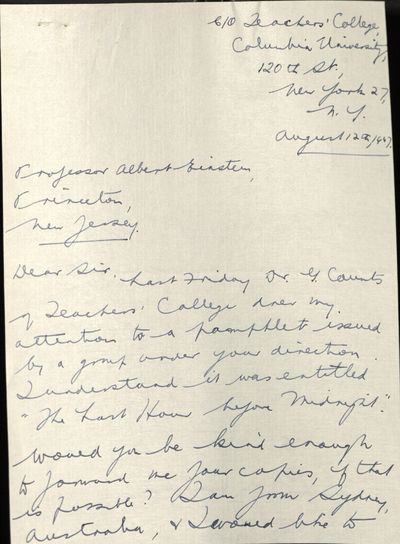 C/O Teachers' College,
Columbia University,
120th St.,
New York 27,
N.Y.
August 12th/1947.
Professor Albert Einstein,
Princeton,
New Jersey.
Dear Sir, Last Friday Dr. G. Counts
of Teachers' College drew my
attention to a pamphlet issued
by a group under your direction.
I understand it was entitled
"The Last Hour before Midnight".
Would you be kind enough
to forward me four copies, if that
is possible? I am from Sydney,
Australia, & I would like to